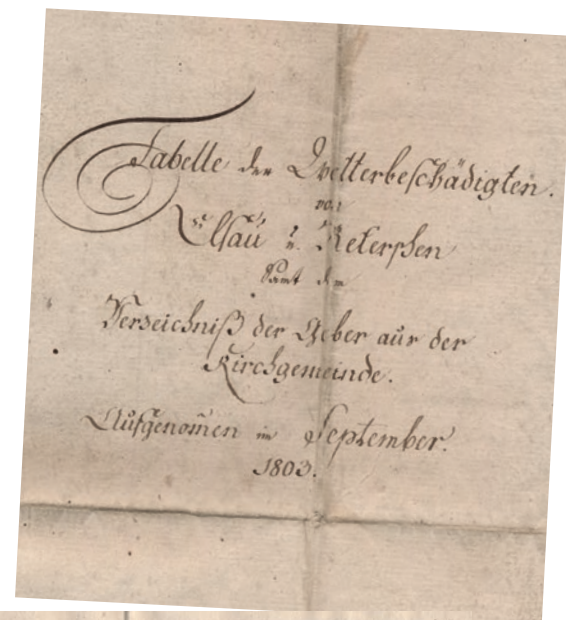 Tabelle der Wetterbeschädigten.
von
Elsaü u. Reterschen
Samt dem
Verzeichniß der Geber aus der
Kirchgemeinde.
Aufgenom̄en im September.
1803.